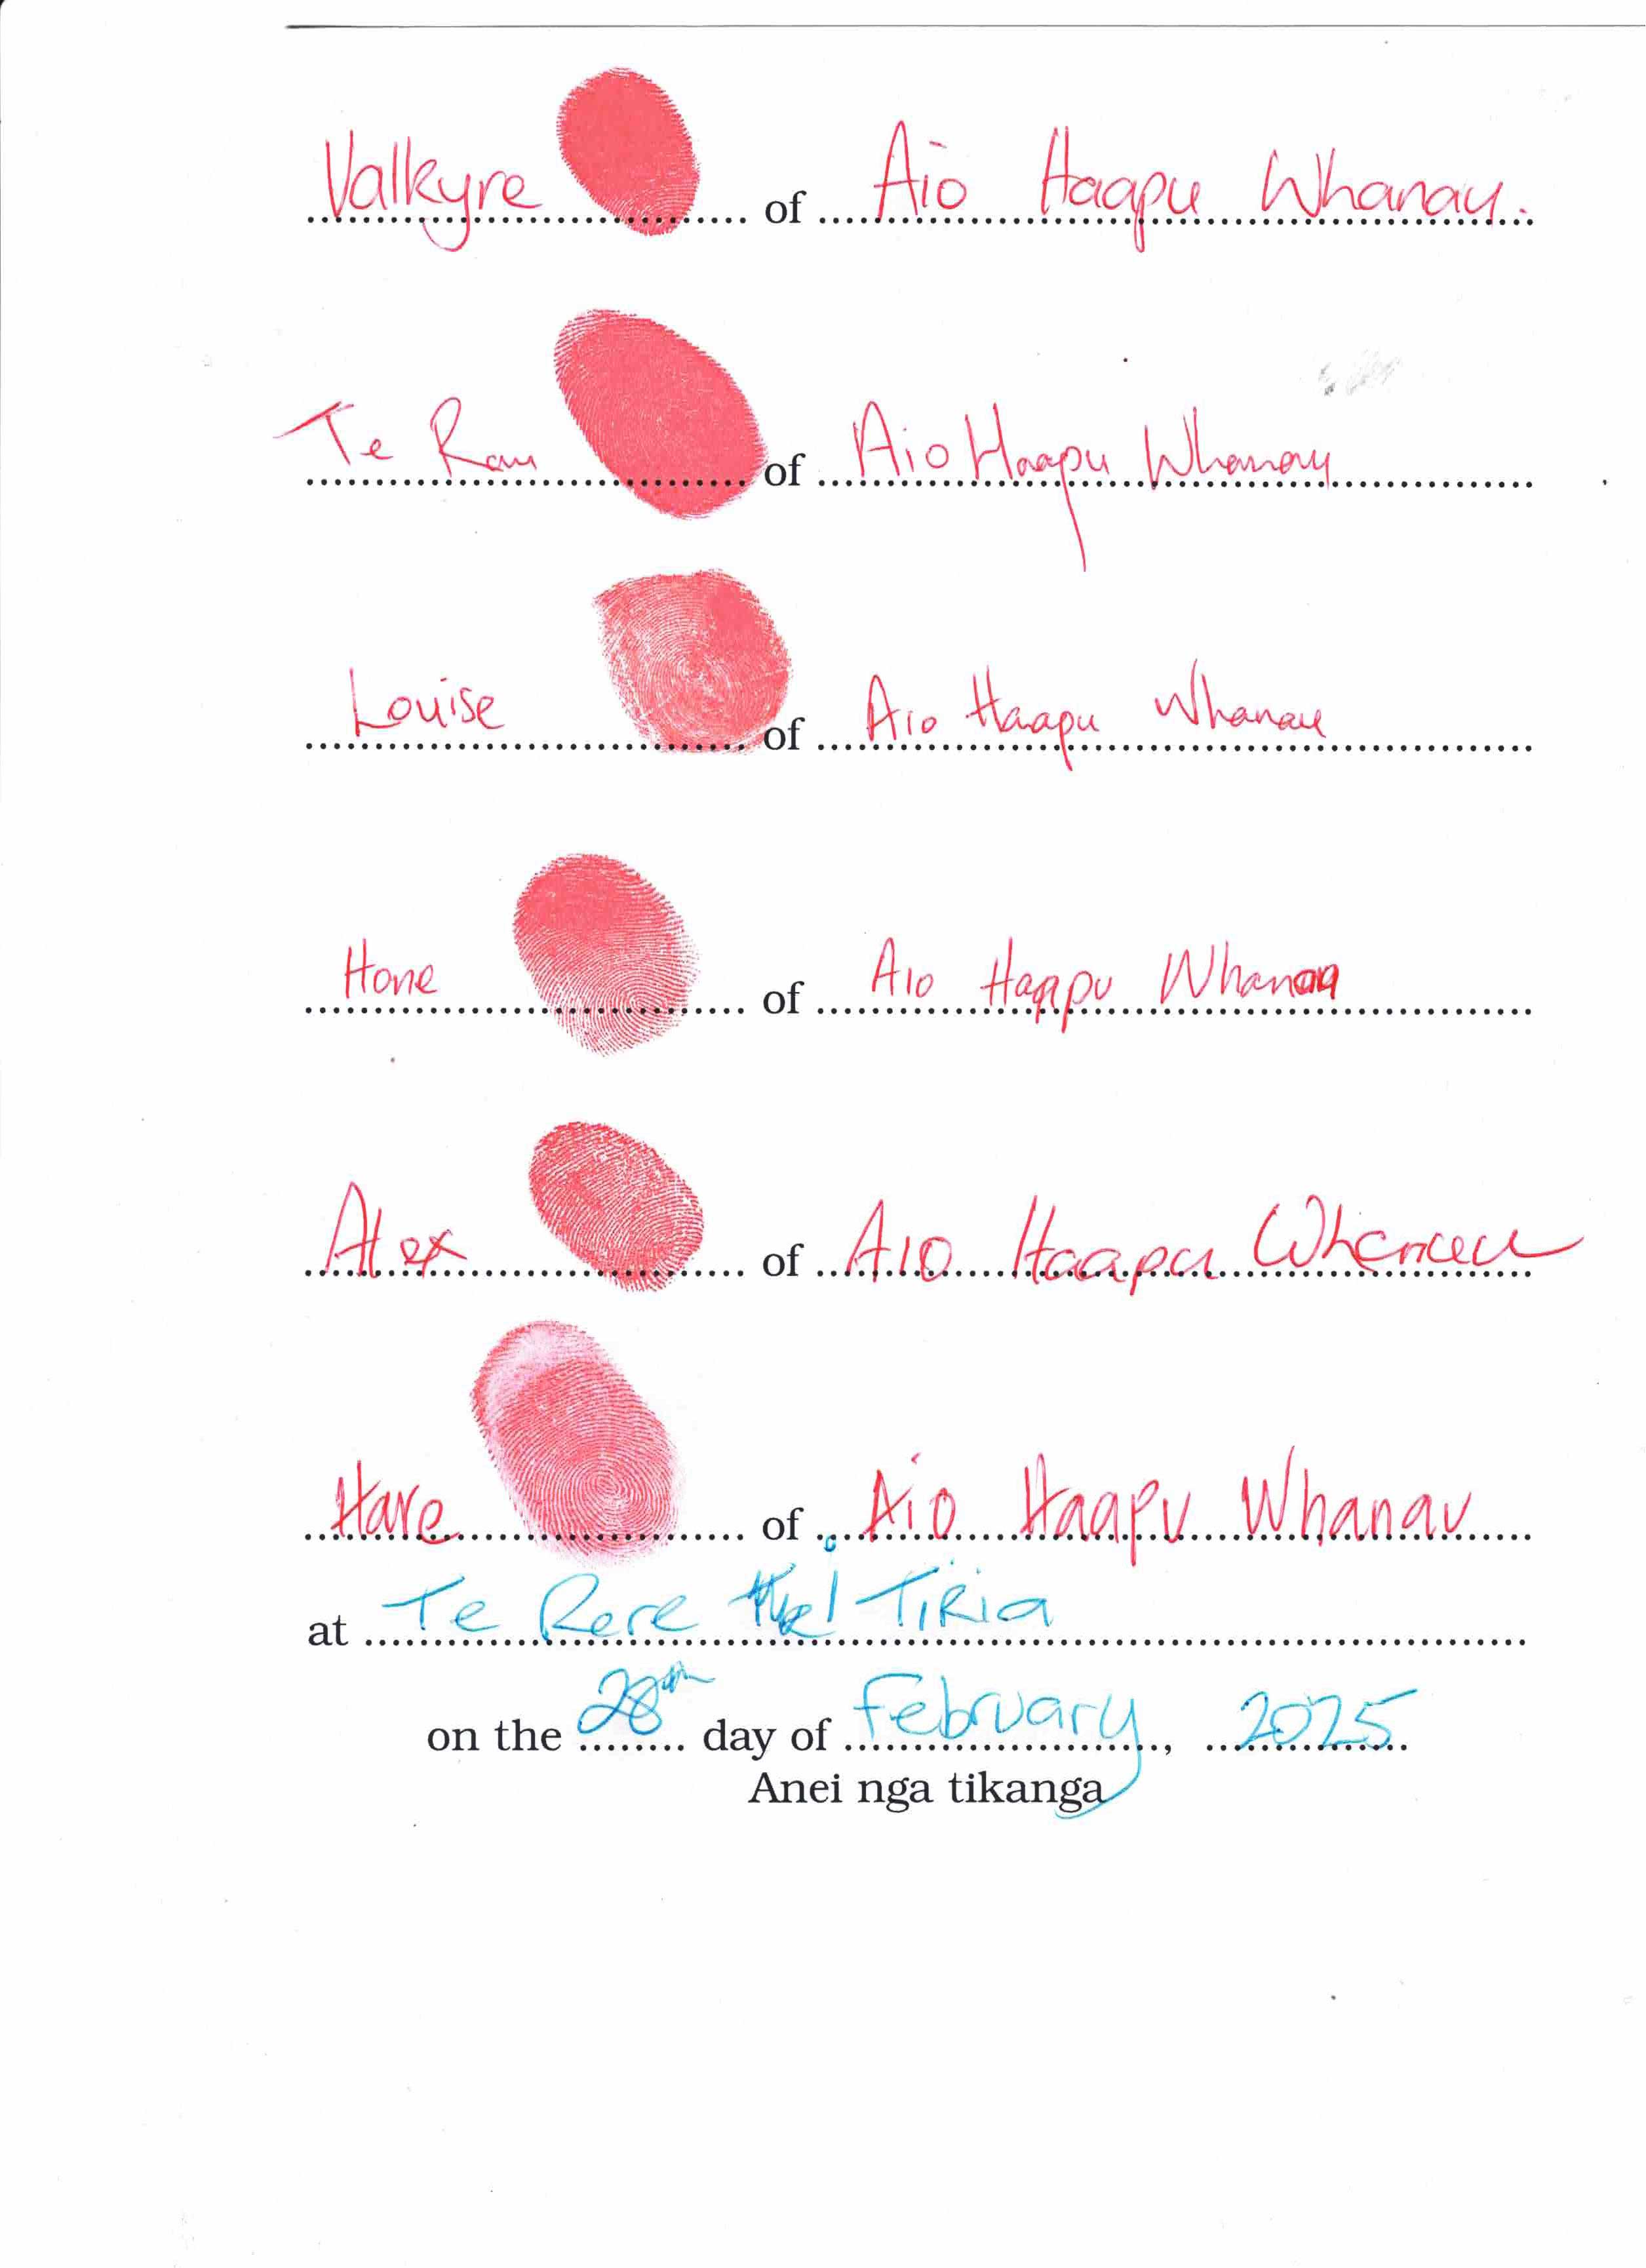 Valkyre of Aio Haapu Whanau.
Te Rau of Aio Haapu Whanau
Louise of Aio Haapu Whanau
Hone of Aio Haapu Whanau
Alex of Aio Haapu Whanau
Hare of Aio Haapu Whanau
at Te Rere Tiria
on the 28th day of February, 2025
Anei nga tikanga